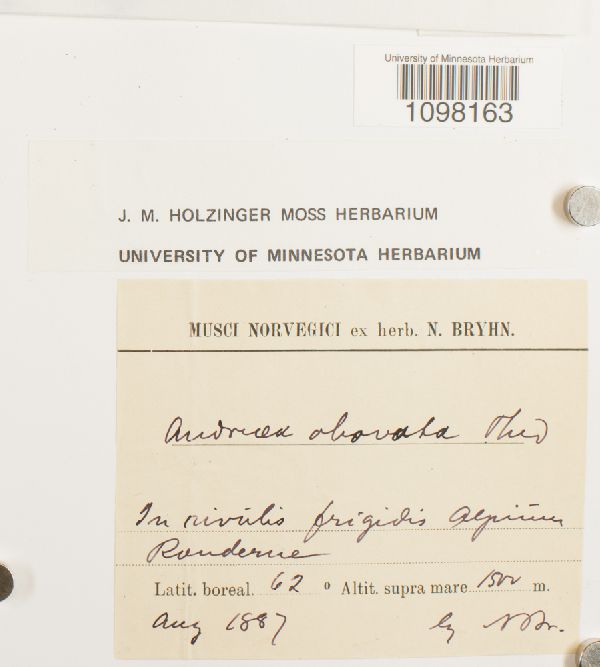 University of Minnesota Herbarium
1098163
J. M. HOLZINGER MOSS HERBARIUM
UNIVERSITY OF MINNESOTA HERBARIUM
MUSCI NORVEGICI ex herb. N. BRYHN.
Andreæa obovata Thed
In rivulis frigidis alpium
Ronderne
Latit. boreal. 62 ° Altit. supra mare 1500 m.
Aug 1887 lg N Br.